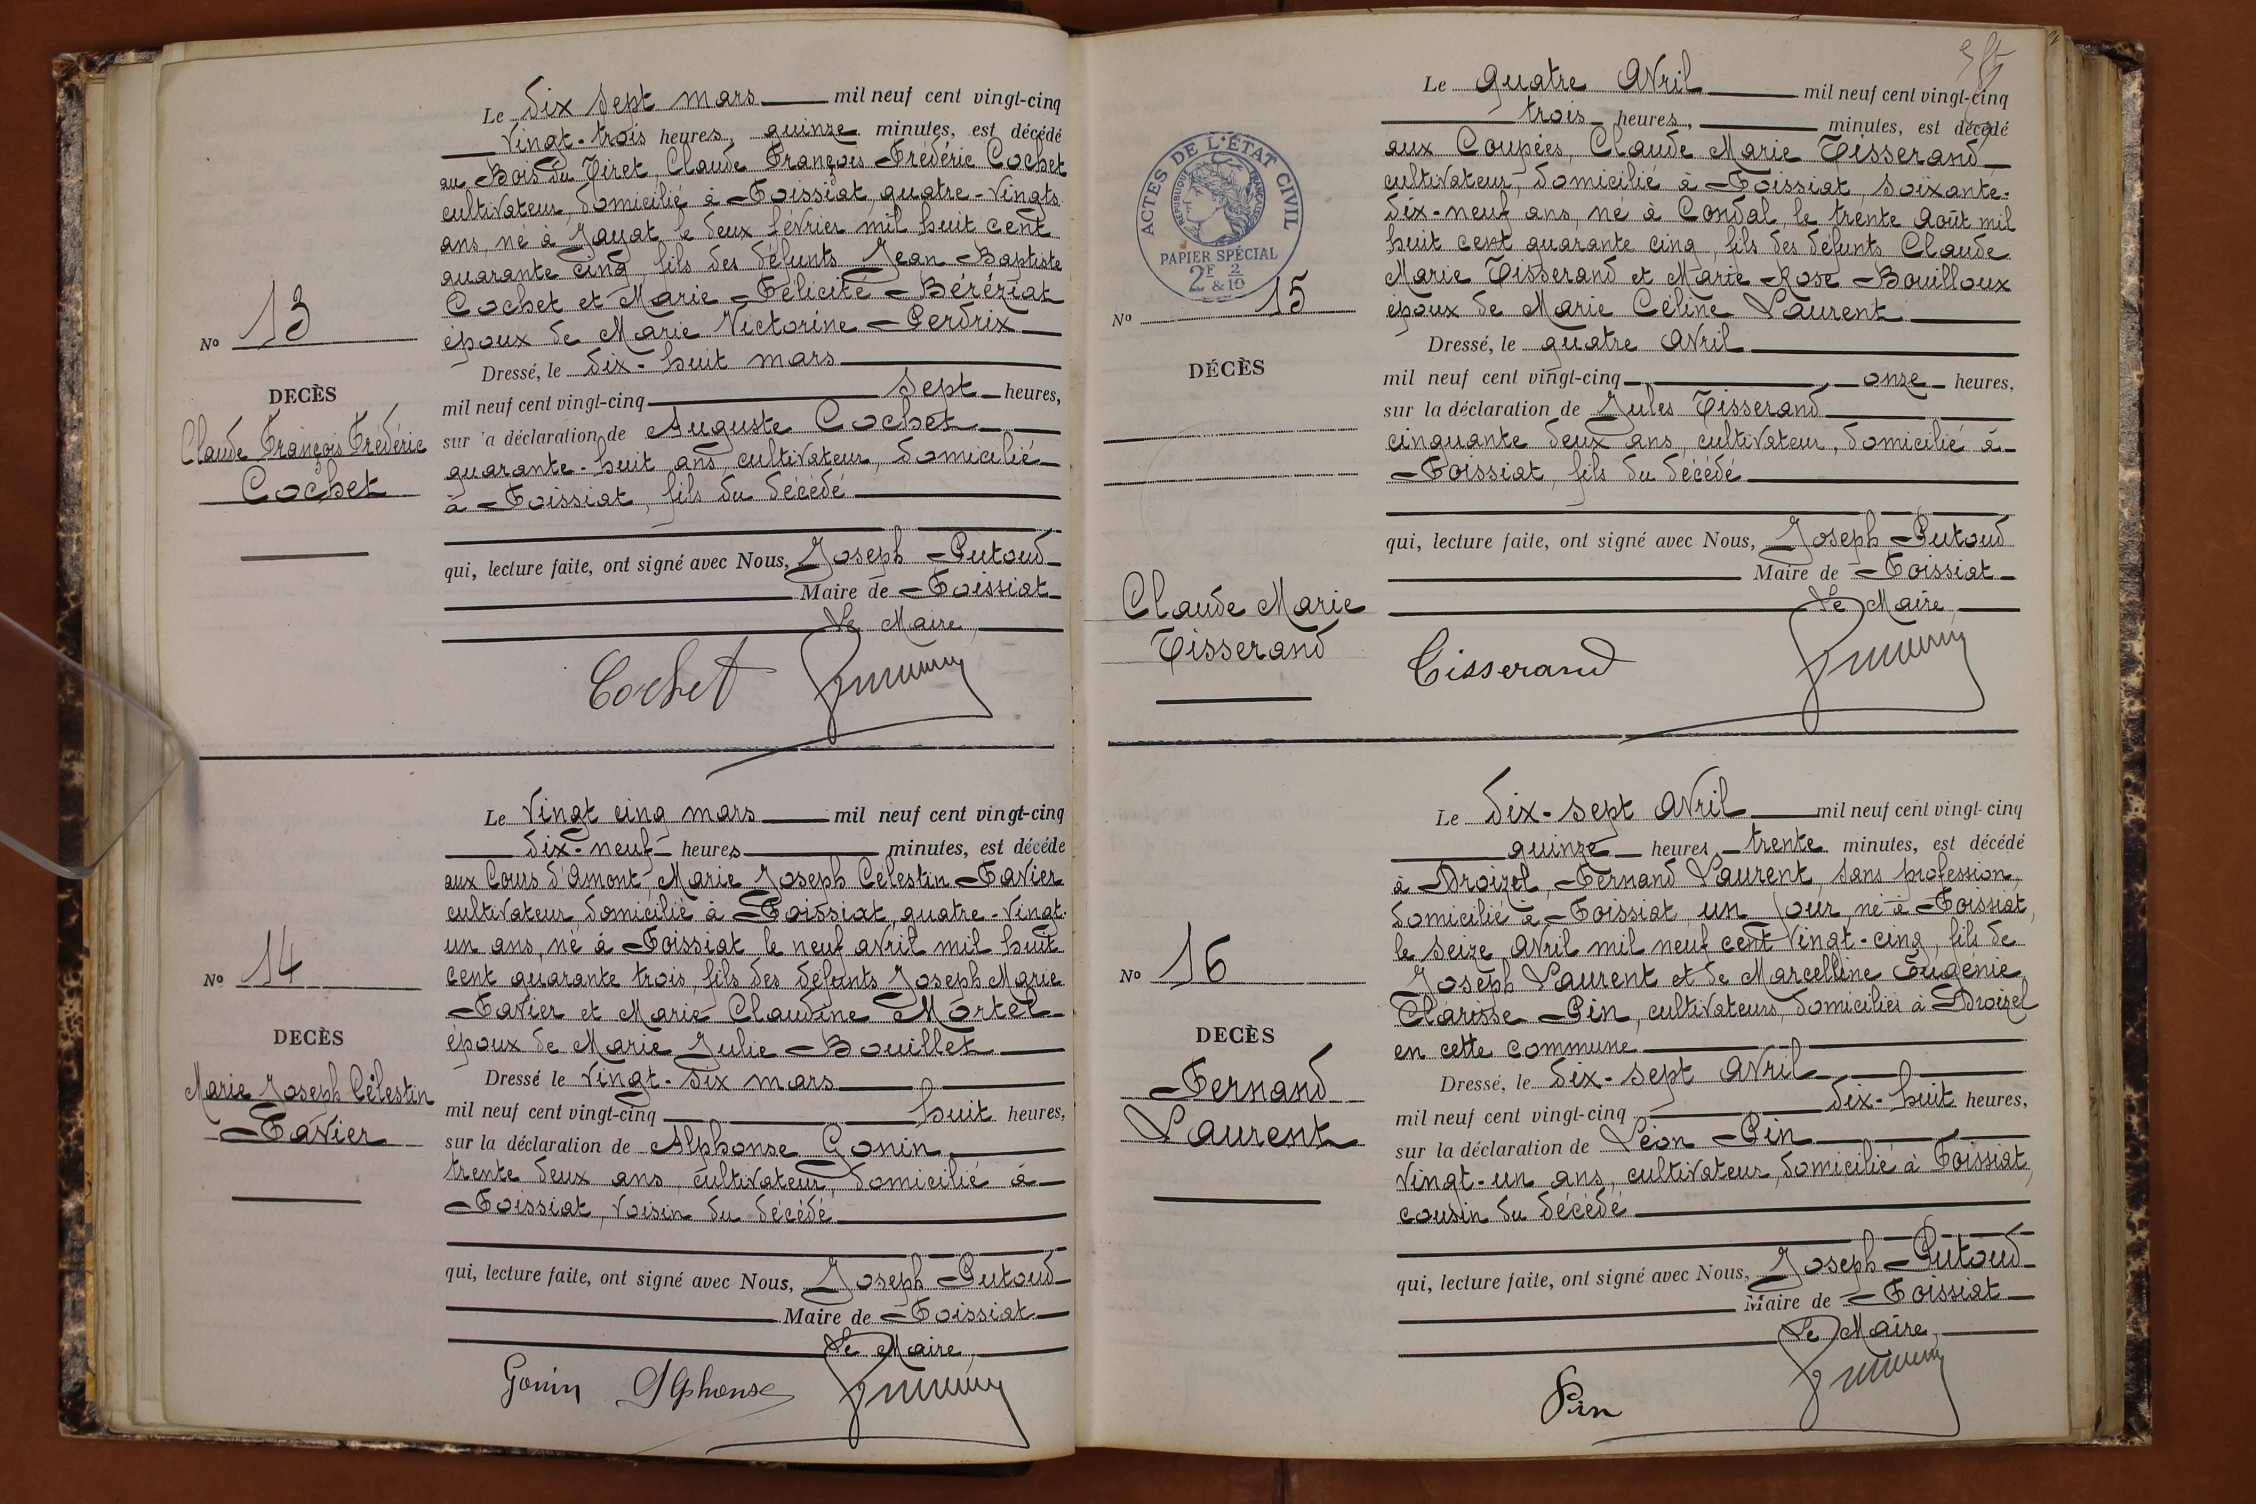 Le dix sept mars mil neuf cent vingt-cinq
vingt-trois heures, quinze minutes, est décédé
au Bois du Tiret, Claude François Frédéric Cochet
cultivateur, domicilié à Foissiat, quatre-vingts
ans, né à Jayat le deux février mil huit cent
quarante cinq, fils des défunts Jean Baptiste
Cochet et Marie Félicité Béréziat
époux de Marie Victorine Perdrix
Dressé, le dix-huit mars
mil neuf cent vingt-cinq sept heures,
sur la déclaration de Auguste Cochet
quarante-huit ans, cultivateur, domicilié
à Foissiat, fils du décédé
qui, lecture faite, ont signé avec Nous, Joseph Putoud
Maire de Foissiat
Le Maire,
Cochet
No 13
DECÈS
Claude François Frédéric
Cochet
Le vingt cinq mars mil neuf cent vingt-cinq
dix-neuf heures minutes, est décédé
aux Cours d'Amont Marie Joseph Célestin Favier
cultivateur, domicilié à Foissiat, quatre-vingt-
un ans, né à Foissiat le neuf avril mil huit
cent quarante trois, fils des défunts Joseph Marie
Favier et Marie Claudine Mortel
époux de Marie Julie Bouillet
Dressé le vingt-six mars
mil neuf cent vingt-cinq huit heures,
sur la déclaration de Alphonse Gonin
trente deux ans, cultivateur, domicilié à
Foissiat, voisin du décédé
qui, lecture faite, ont signé avec Nous, Joseph Putoud
Maire de Foissiat
Le Maire,
Gonin Alphonse
No 14
DECÈS
Marie Joseph Célestin
Favier
Le quatre Avril mil neuf cent vingt-cinq
trois heures, minutes, est décédé
aux Coupées, Claude Marie Tisserand
cultivateur, domicilié à Foissiat, soixante-
dix-neuf ans, né à Condal, le trente Août mil
huit cent quarante cinq, fils des défunts Claude
Marie Tisserand et Marie Rose Bouilloux
époux de Marie Céline Laurent
Dressé, le quatre Avril
mil neuf cent vingt-cinq onze heures,
sur la déclaration de Jules Tisserand
cinquante deux ans, cultivateur, domicilié à
Foissiat, fils du décédé
qui, lecture faite, ont signé avec Nous, Joseph Putoud
Maire de Foissiat
Le Maire,
Tisserand
ACTES DE L'ÉTAT CIVIL
RÉPUBLIQUE FRANÇAISE
PAPIER SPÉCIAL
2F & 2/10
No 15
DÉCÈS
Claude Marie
Tisserand
Le dix-sept Avril mil neuf cent vingt-cinq
quinze heures trente minutes, est décédé
à Droizel, Fernand Laurent, sans profession,
domicilié à Foissiat un jour, né à Foissiat,
le seize Avril mil neuf cent vingt-cinq, fils de
Joseph Laurent et de Marcelline Eugénie
Clarisse Pin, cultivateurs, domiciliés à Droizel
en cette commune
Dressé, le dix-sept Avril
mil neuf cent vingt-cinq dix-huit heures,
sur la déclaration de Léon Pin
vingt-un ans, cultivateur, domicilié à Foissiat,
cousin du décédé
qui, lecture faite, ont signé avec Nous, Joseph Putoud
Maire de Foissiat
Le Maire,
Pin
No 16
DECÈS
Fernand
Laurent